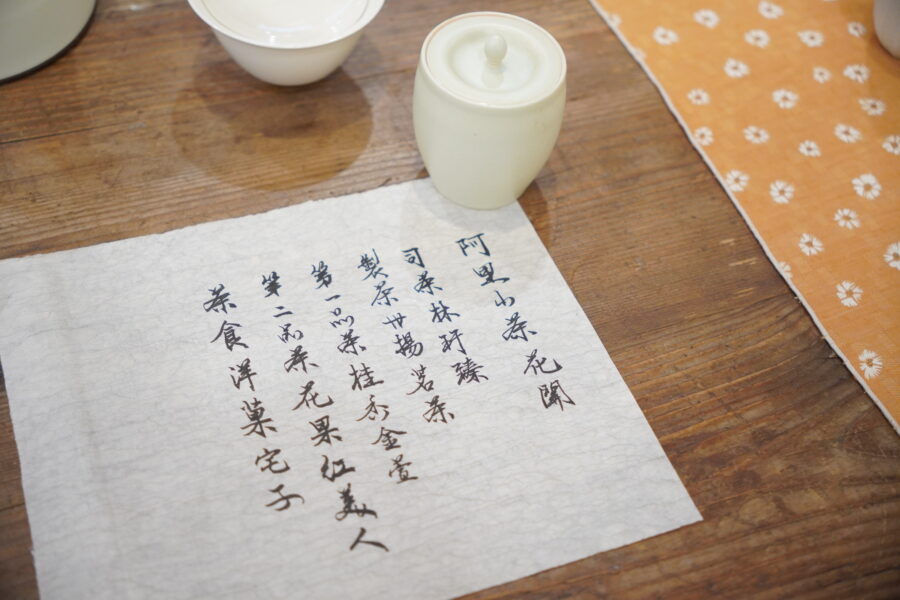 阿里山茶花開
司茶林玗臻
製茶世揚茗茶
第一品茶桂香金萱
第二品茶花果紅美人
茶食洋菓宅子